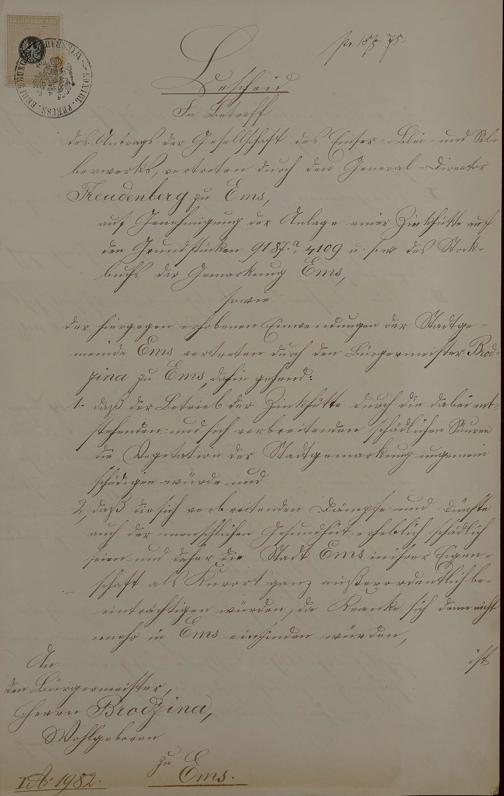 pr. 18/7 75.
Bescheid
In Betreff
des Antrags der Gesellschaft des Emser-Blei- und Sil-
berwerks, vertreten durch den General-Director
Freudenberg zu Ems,
auf Genehmigung der Anlage einer Zinkhütte auf
den Grundstücken 9187.a 4109 u. s. w. des Stock-
buchs der Gemarkung Ems,
sowie
der hiergegen erhobenen Einwendungen der Stadtge-
meinde Ems vertreten durch den Bürgermeister Brod-
zina zu Ems, dahin gehend:
1. daß der Betrieb der Zinkhütte durch die dabei ent-
stehenden und sich verbreitenden schädlichen Säuren
die Vegetation der Stadtgemarkung ungemein
schädigen würde und
2, daß die sich verbreitenden Dämpfe und Dünste
auch der menschlichen Gesundheit erheblich schädlich
seien und daher die Stadt Ems in ihrer Eigen-
schaft als Kurort ganz außerordentlich be-
einträchtigen würden, da Kranke sich dann nicht
mehr in Ems einfinden würden,
ist
An
den Bürgermeister,
Herrn Brodzina,
Wohlgeboren
zu
Ems.
1982.